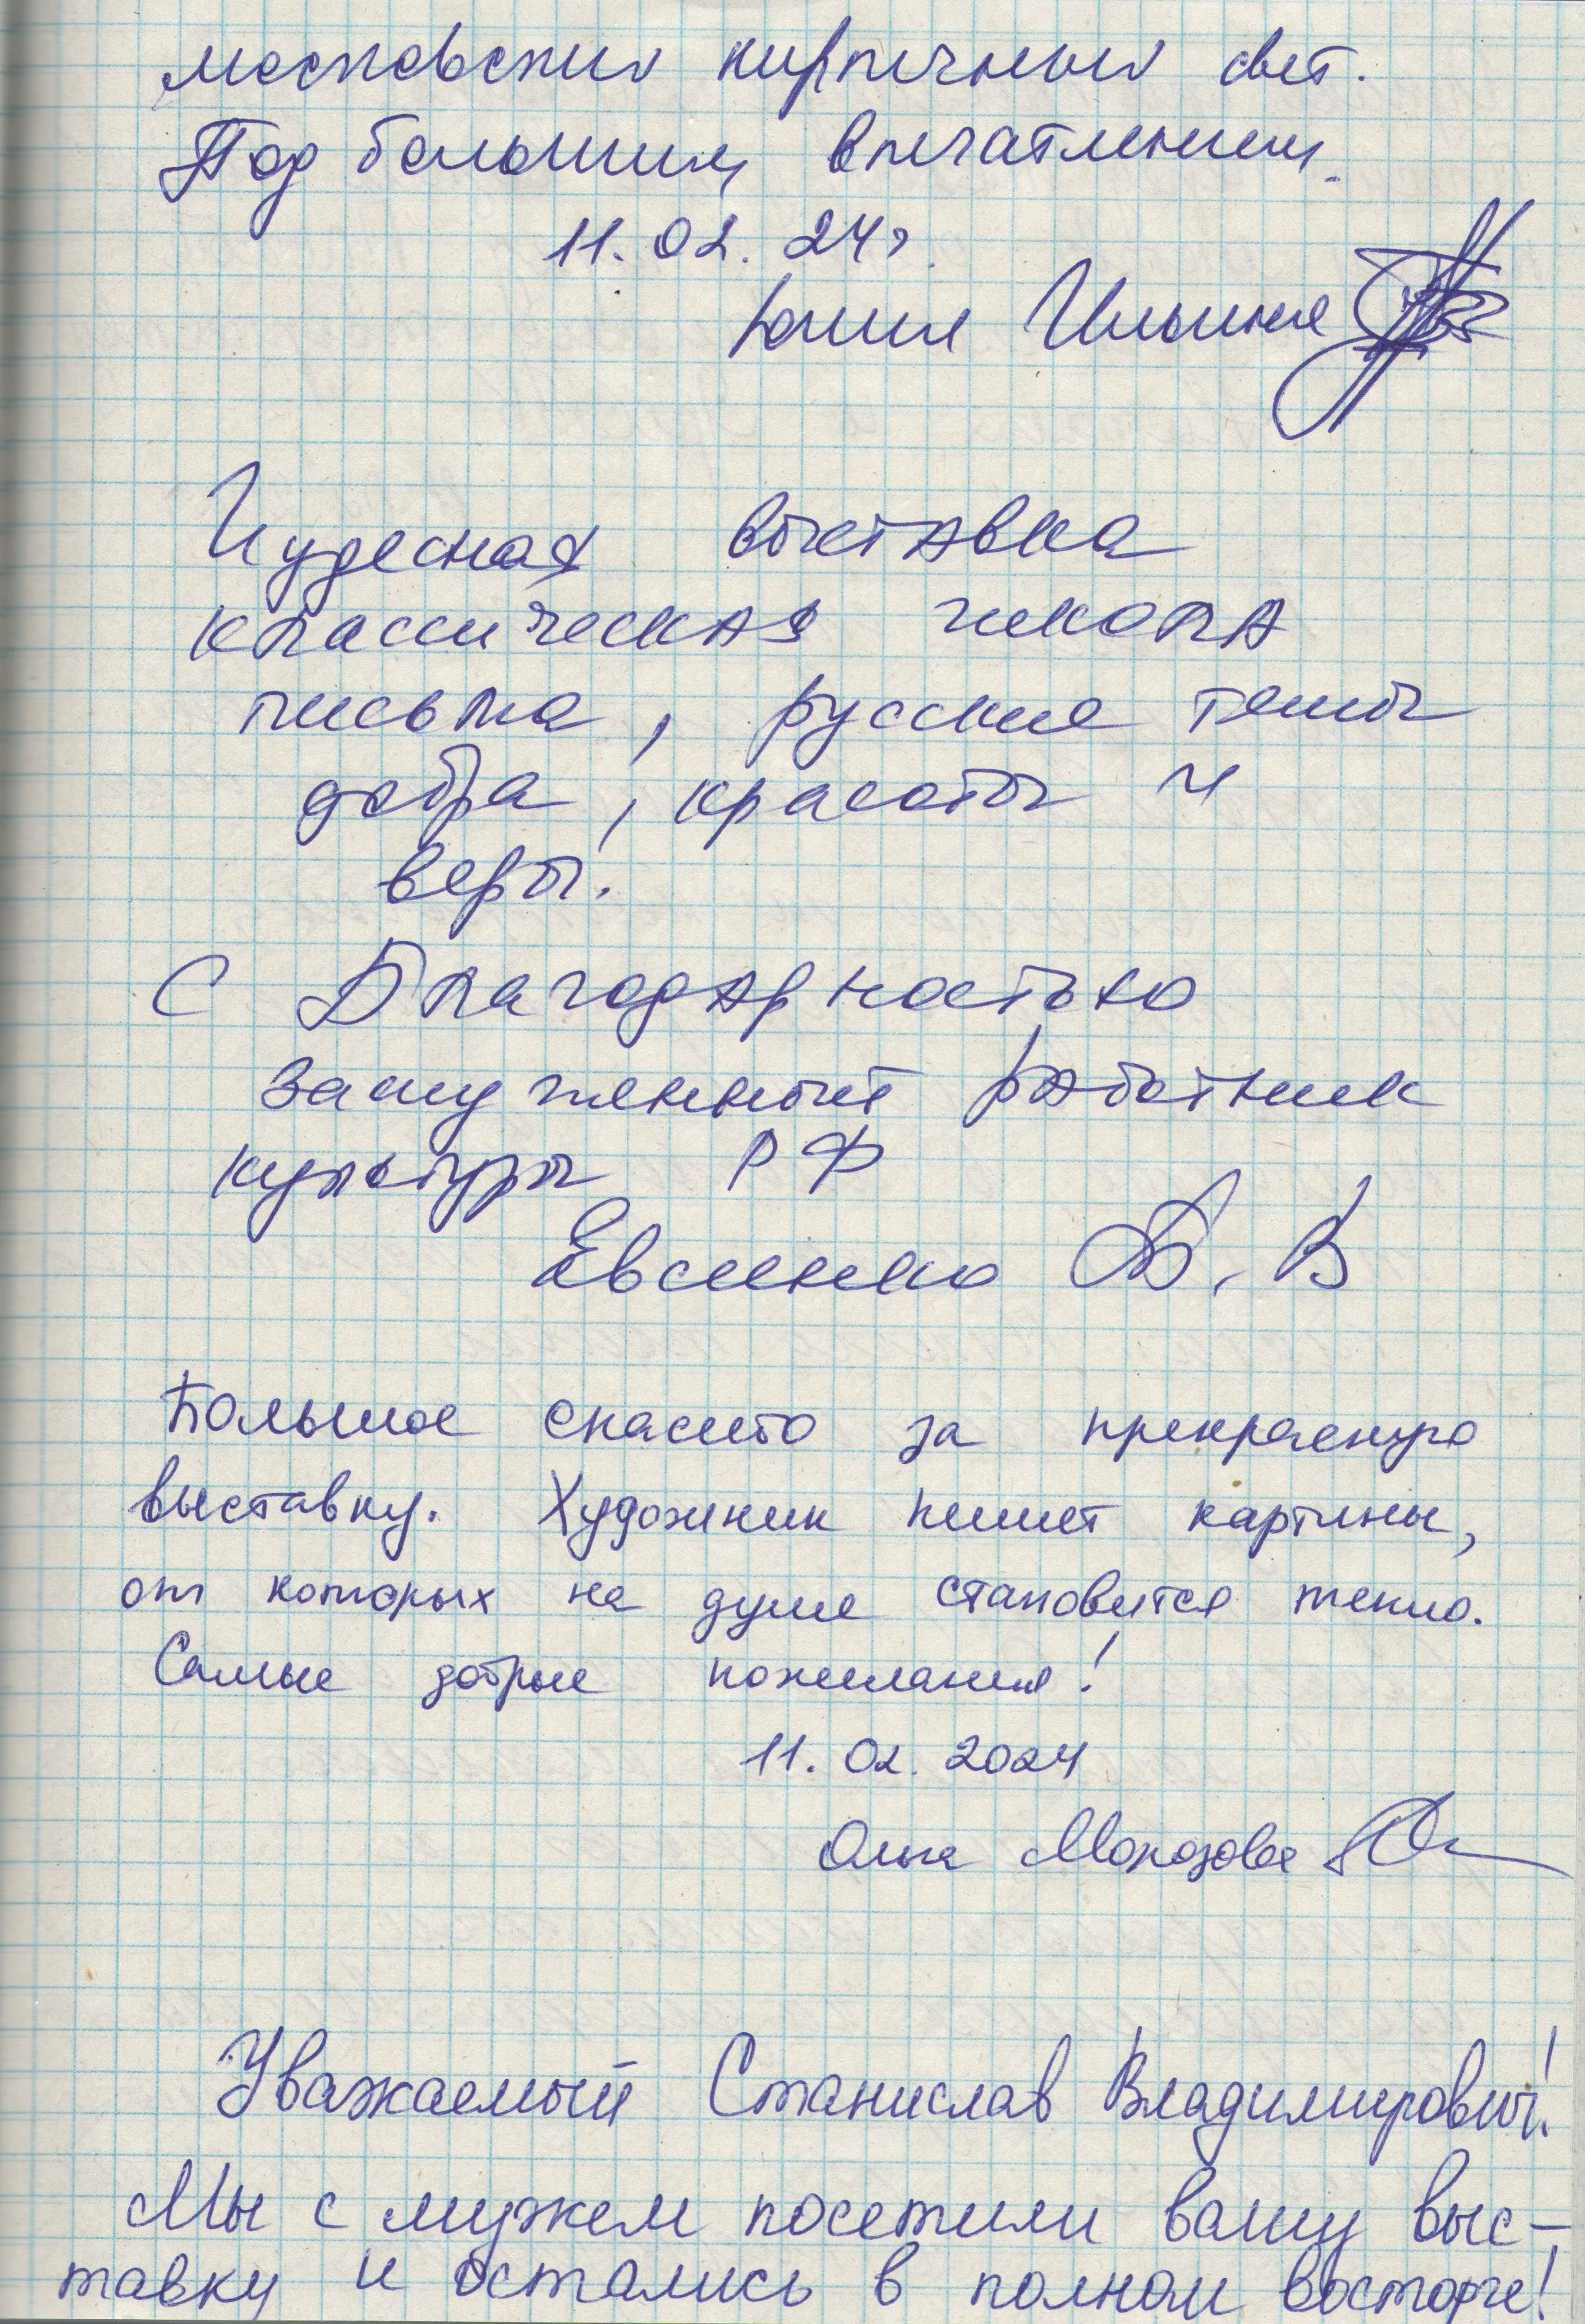 московских кирпичных свет.
Под большим впечатлением.
11.02.24г.
Юлия Ильина
Чудесная выставка
классическая школа
письма, русские темы
добра, красоты и
веры!
С Благодарностью
заслуженный работник
культуры РФ
Евсиенко А. В
Большое спасибо за прекрасную
выставку. Художник пишет картины,
от которых на душе становится тепло.
Самые добрые пожелания!
11.02.2024
Ольга Морозова
Уважаемый Станислав Владимирович!
Мы с мужем посетили вашу выс-
тавку и остались в полном восторге!